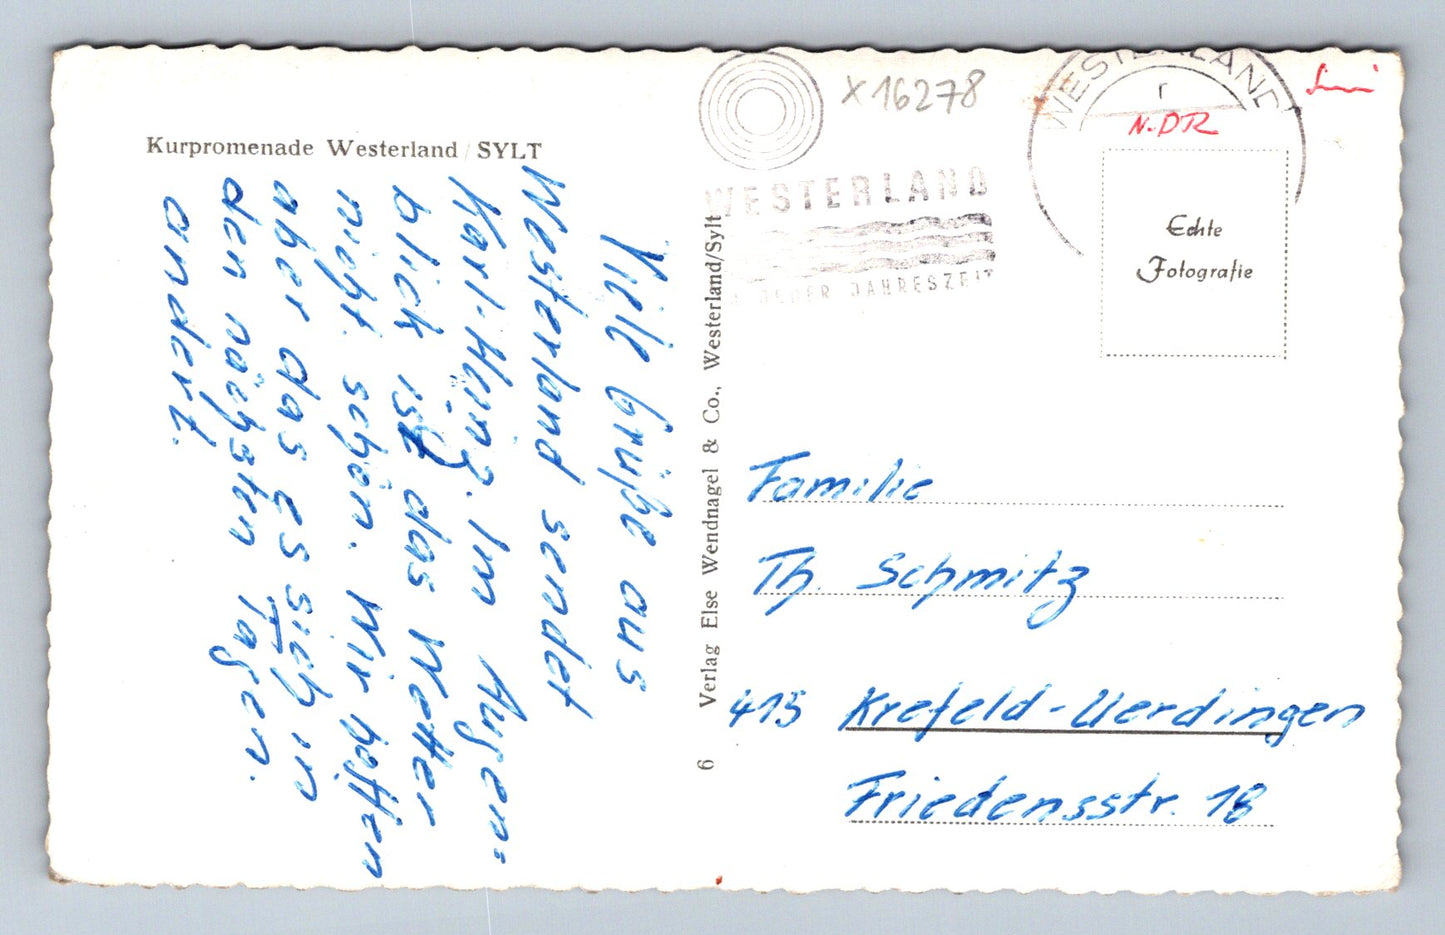 Kurpromenade Westerland / SYLT
Viele Grüße aus
Westerland sendet
Karl-Heinz. Im Augen-
blick ist das Wetter
nicht schön. Wir hoffen
aber das es sich in
den nächsten Tagen
ändert.
6 Verlag Else Wendnagel & Co., Westerland/Sylt
X16278
WESTERLAND
JEDER JAHRESZEIT
WESTERLAND
r
N-DR
Echte
Fotografie
Familie
Th. Schmitz
415 Krefeld-Uerdingen
Friedensstr. 18